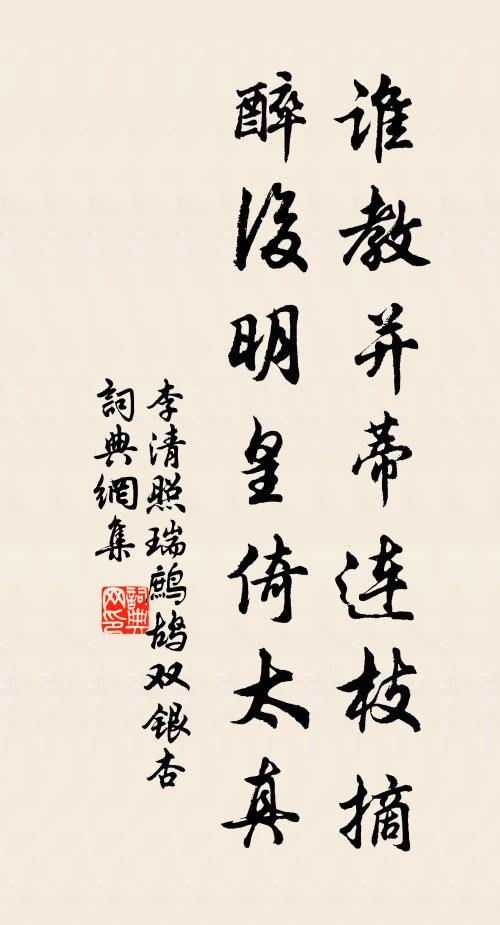 谁教并蒂連枝摘
醉後明皇倚太真
李清照瑞鷓鴣双银杏
詞典網集
詞典网印